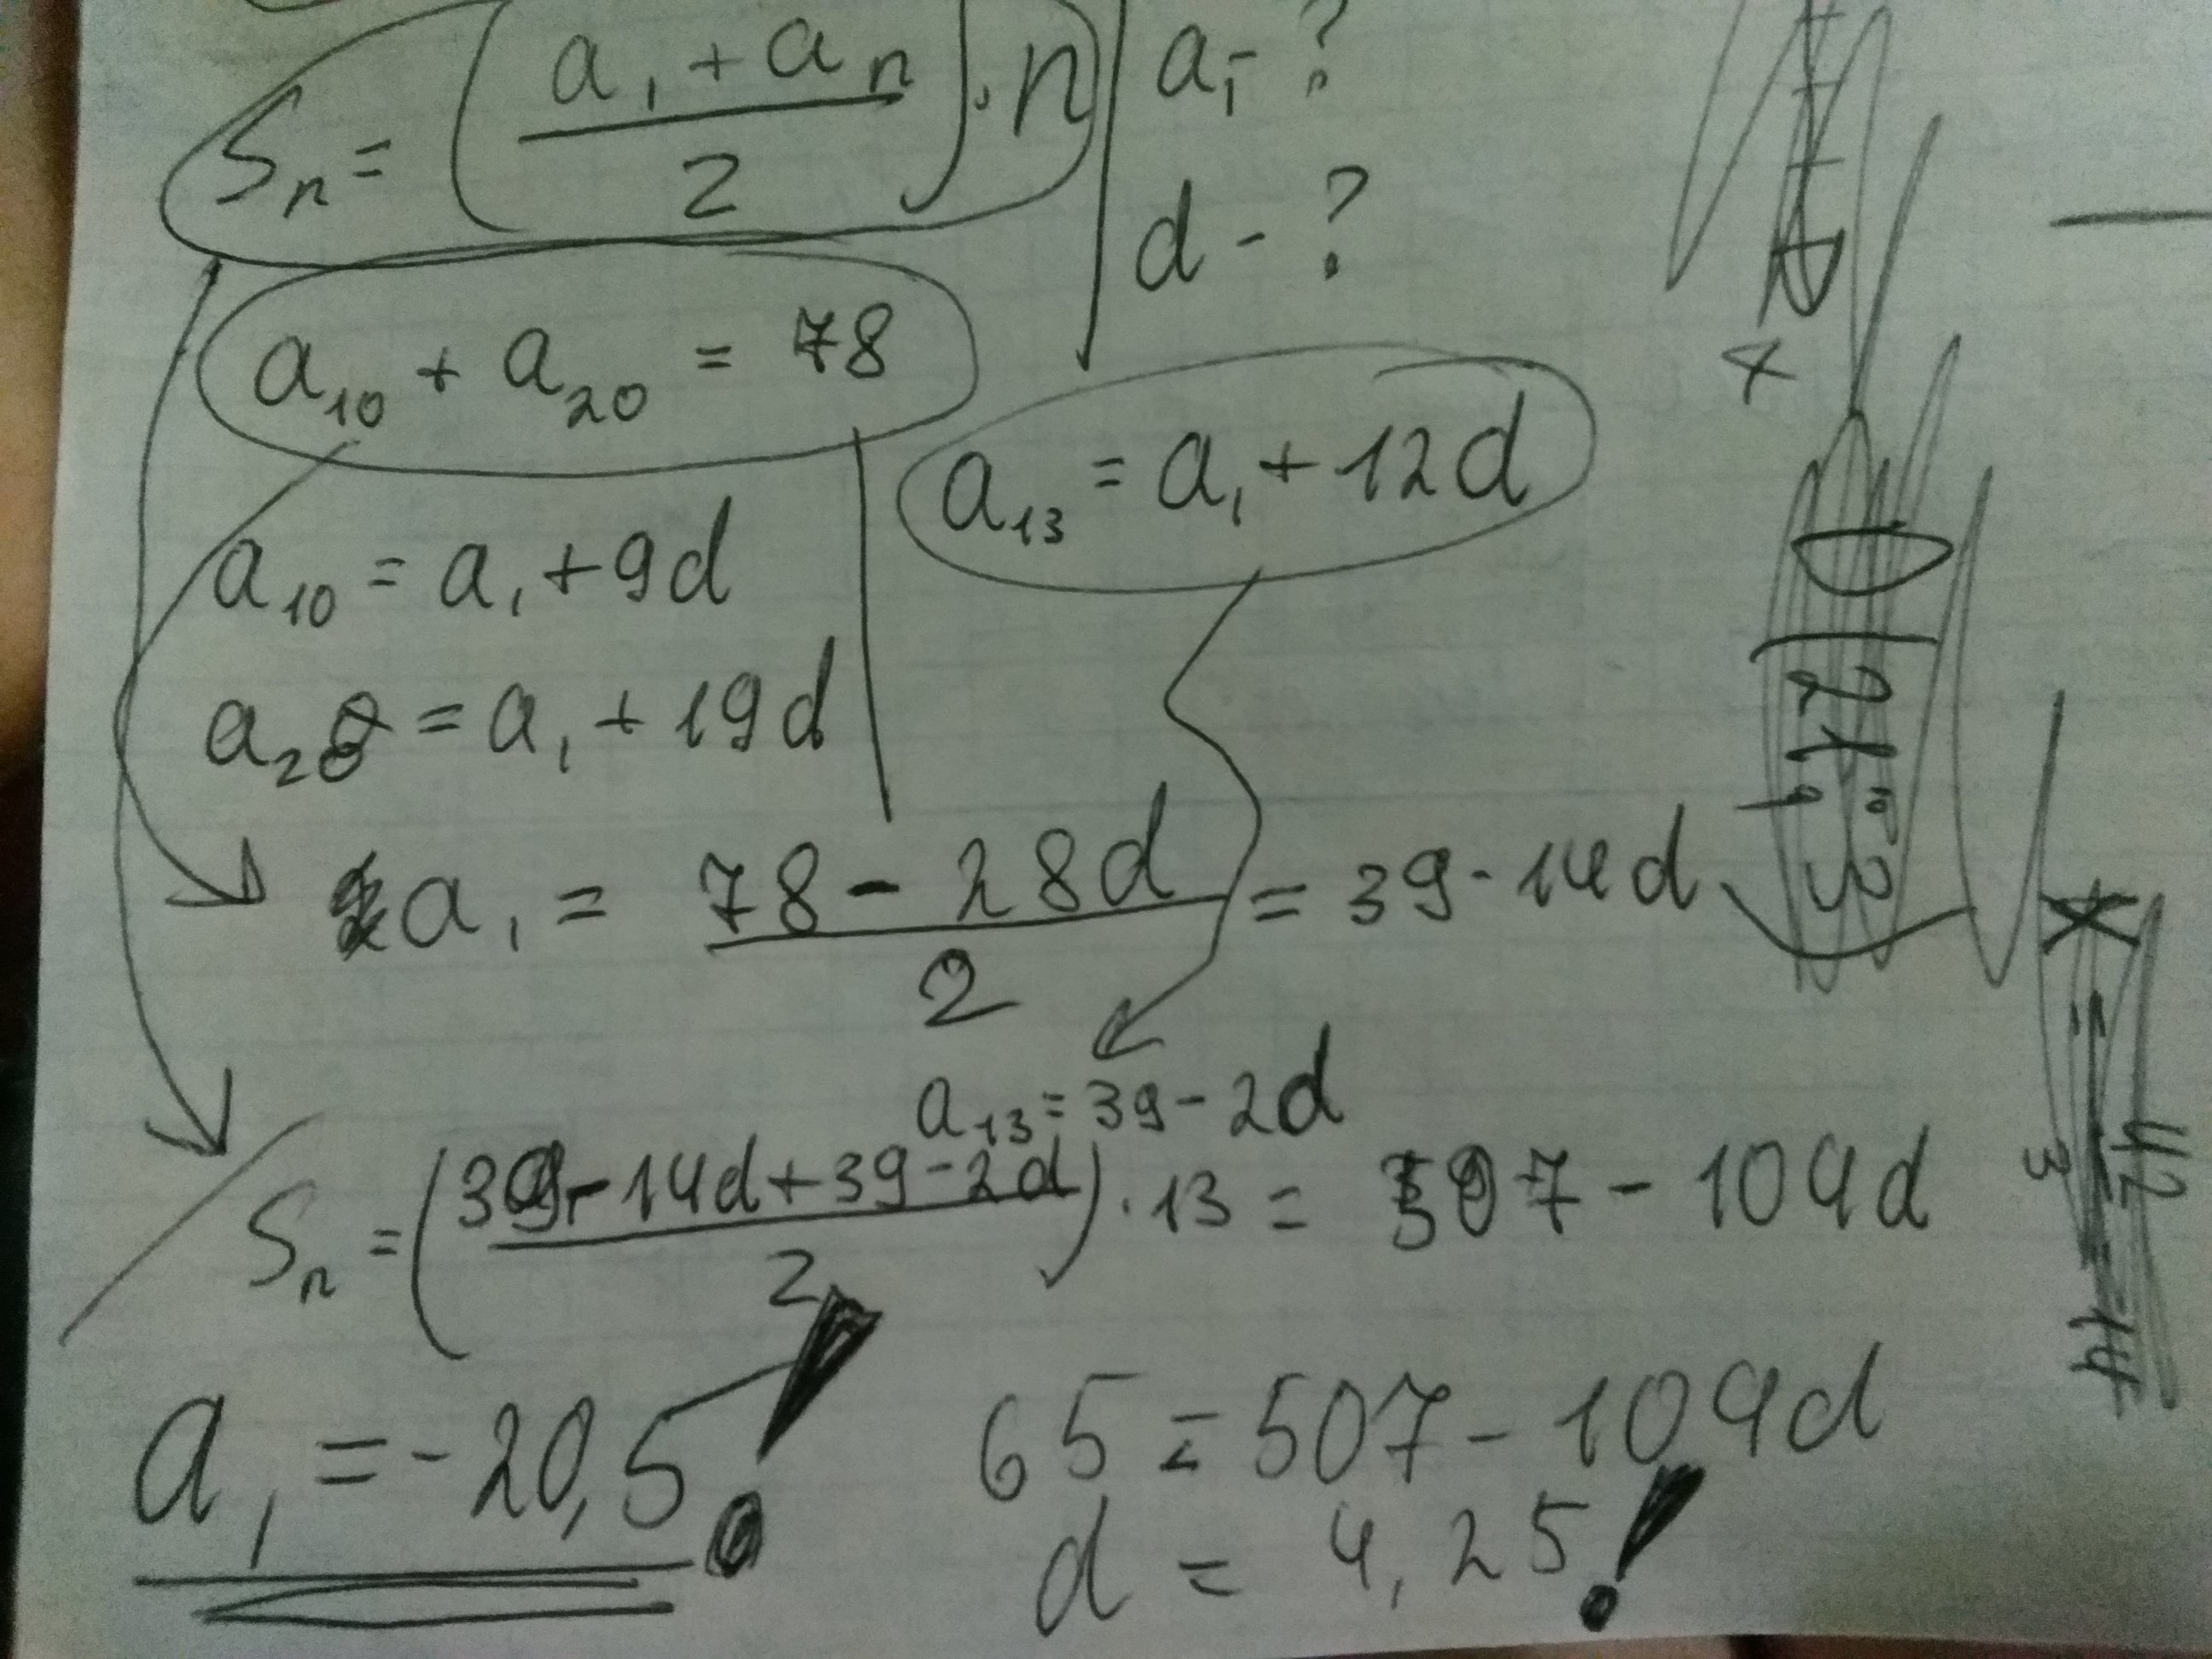 Sn = ((a1 + an)/2) · n
a1 - ?
d - ?
a10 + a20 = 78
a13 = a1 + 12d
a10 = a1 + 9d
a20 = a1 + 19d
a1 = (78 - 28d)/2 = 39 - 14d
a13 = 39 - 2d
Sn = ((39 - 14d + 39 - 2d)/2) · 13 = 507 - 104d
a1 = -20,5!
65 = 507 - 104d
d = 4,25!